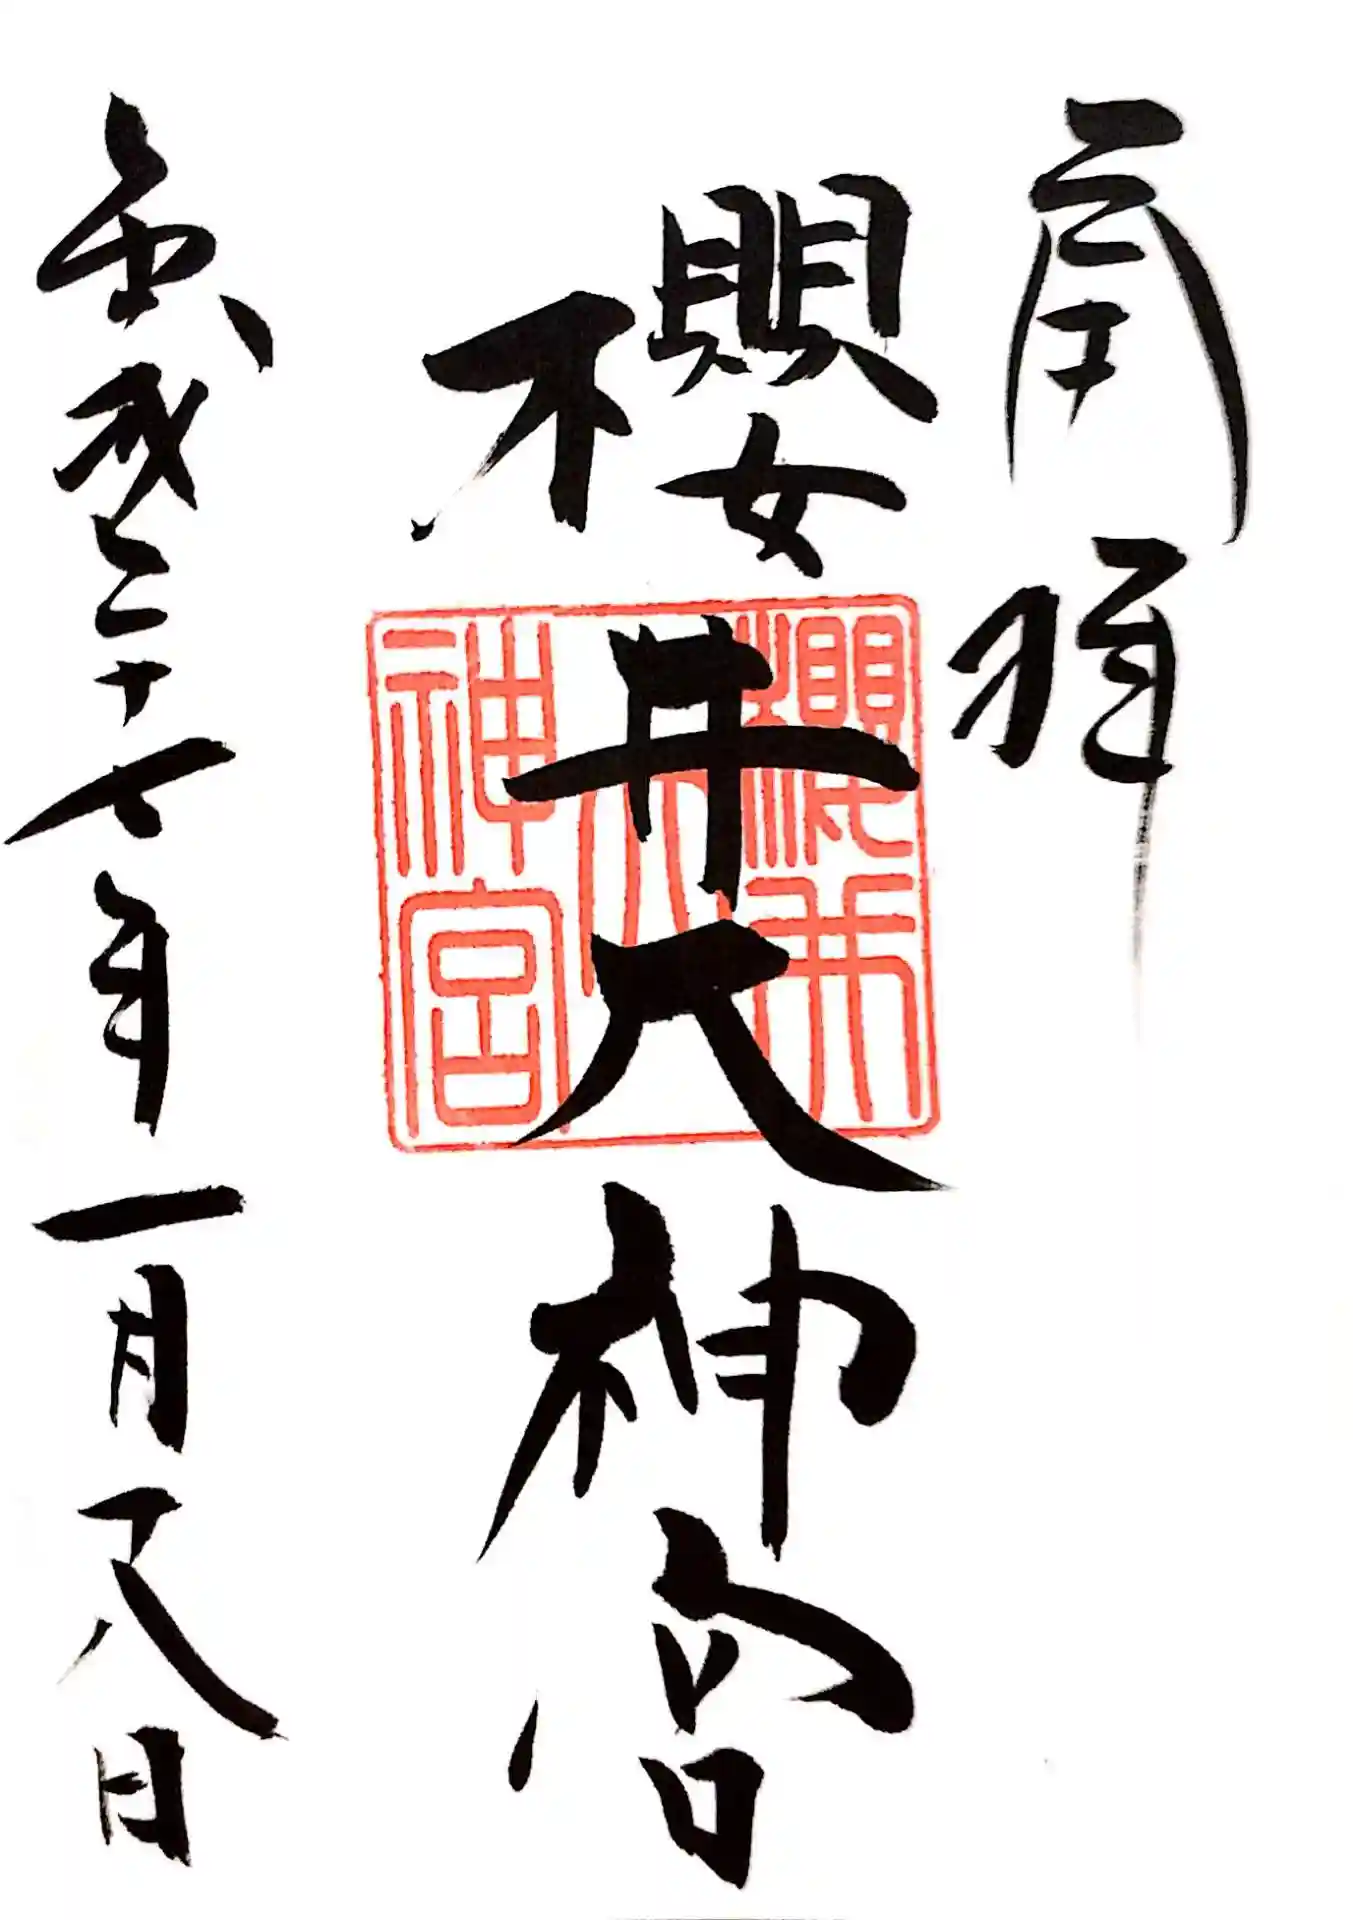 奉拝
櫻井大神宮
平成二十七年一月十八日
櫻井
大
神宮